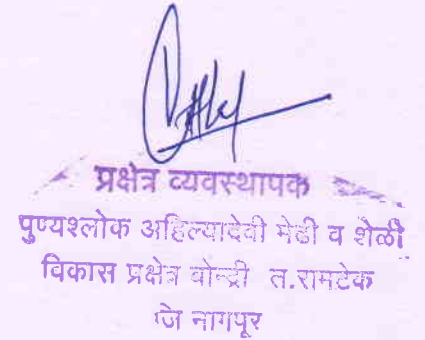 प्रक्षेत्र व्यवस्थापक
पुण्यश्लोक अहिल्यादेवी मेंढी व शेळी
विकास प्रक्षेत्र बोन्द्री त.रामटेक
जि नागपूर